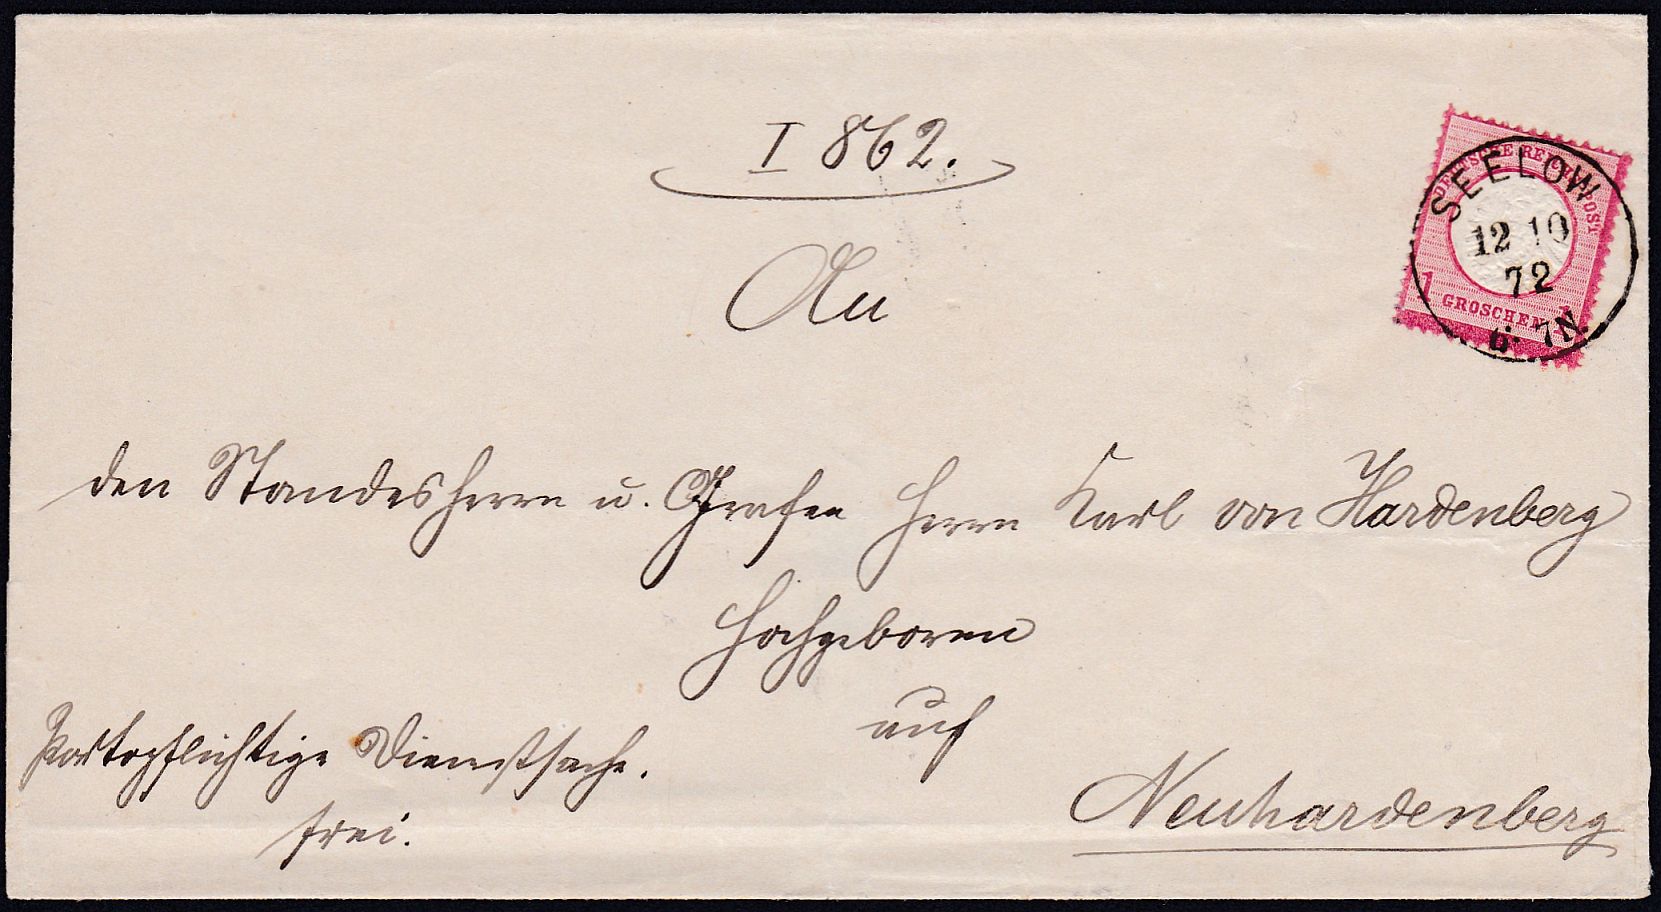 I 862.
DEUTSCHE REICHS-POST
SEELOW
12 10
72
1 GROSCHEN 1
6-7N.
An
den Standesherrn u. Grafen Herrn Karl von Hardenberg
Hochgeboren
auf
Neuhardenberg
Portopflichtige Dienstsache.
frei.